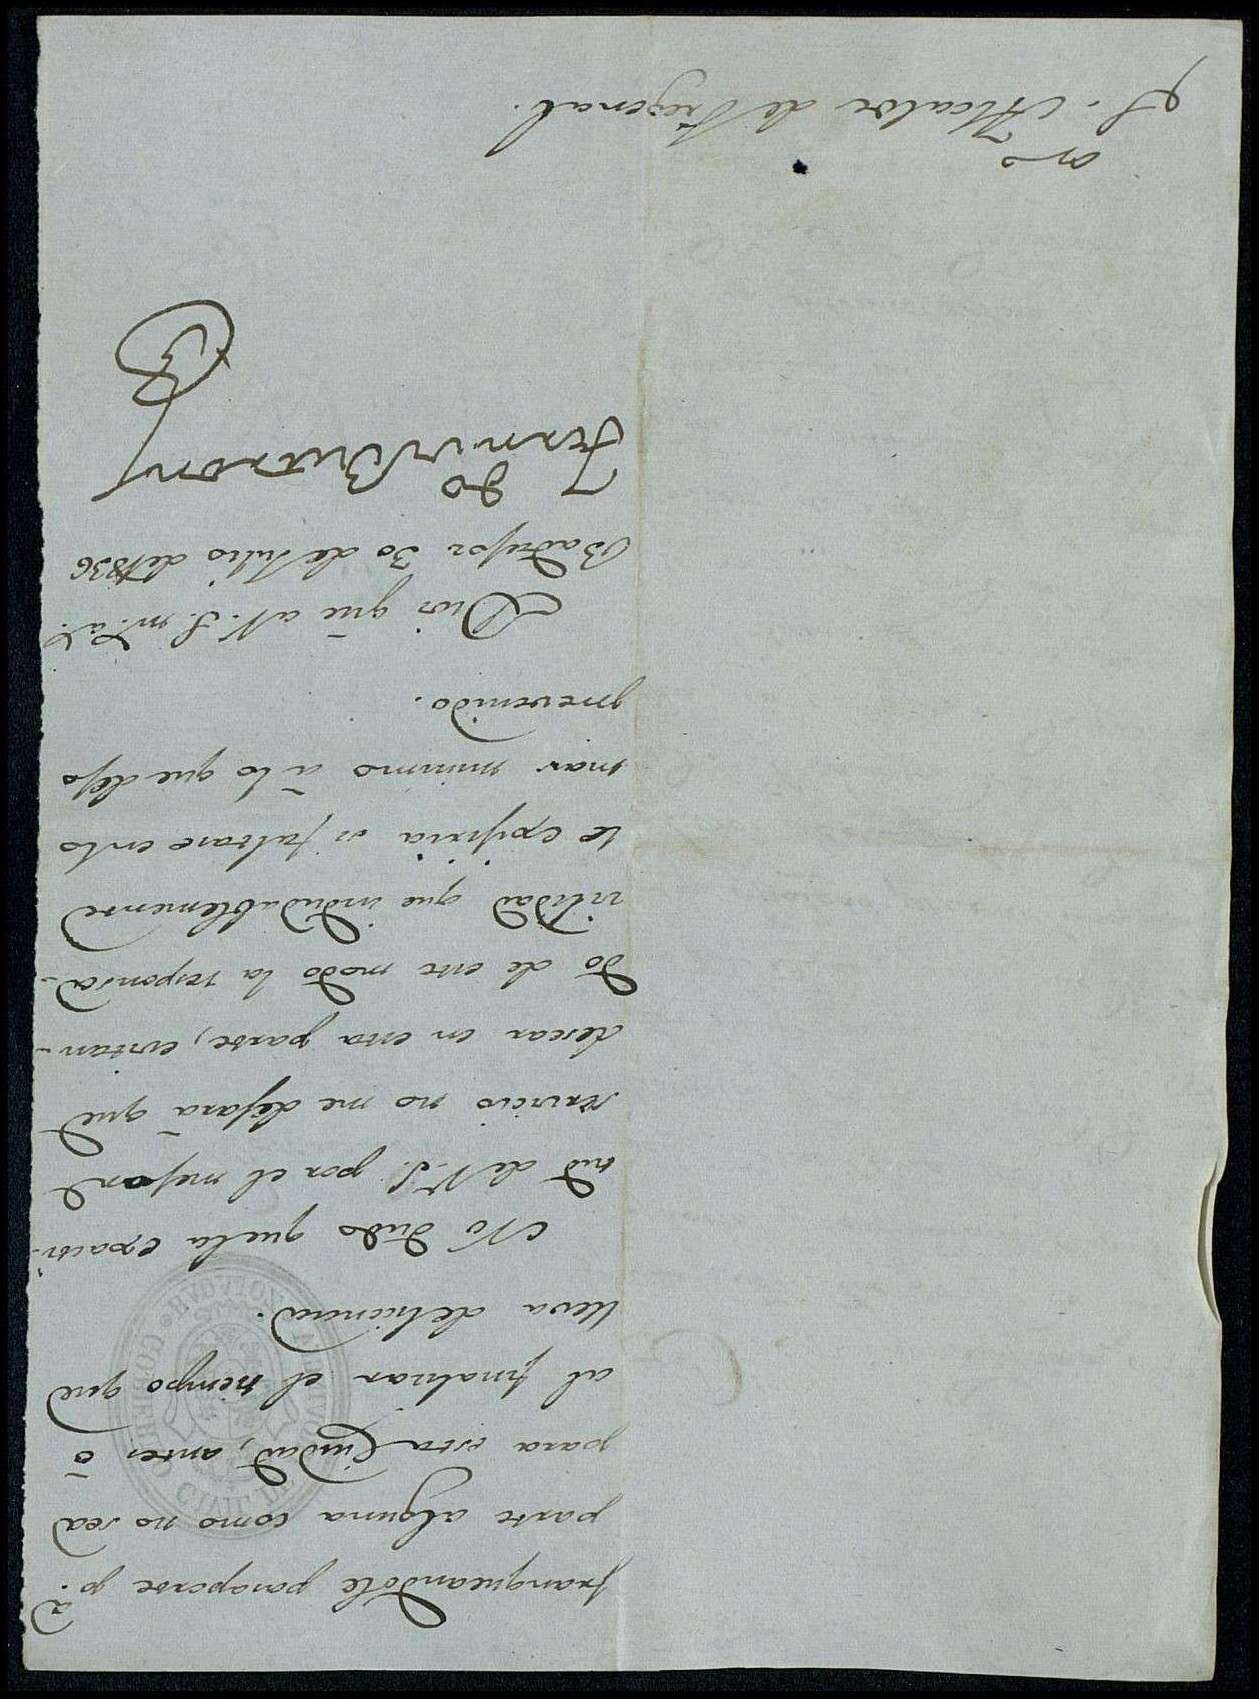 franqueandole pasaporte p.ª
parte alguna como no sea
para esta Ciudad, antes ó
al finalizar el tiempo que
lleva de licencia.
No dudo que la exacti-
tud de V.S. por el mejor
servicio no me dejará que
desear en esta parte, evitan-
do de este modo la responsa-
vilidad que indudablemente
le exijiria si faltase en lo
mas minimo á lo que dejo
prevenido.
Dios gūe á V.S. m.s a.s
Badajoz 30 de Julio de 1836
Fern.do
S.or Alcalde de Fregenal.
GOBIERNO CIVIL DE